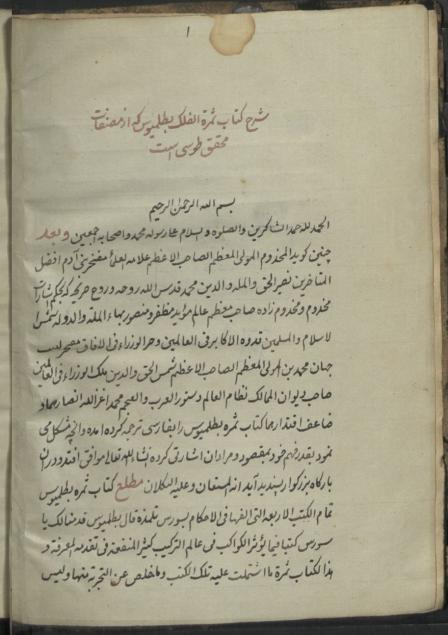 ١
شرح کتاب ثمرة الفلک بطلمیوس که از مصنفات
محقق طوسی است
بسم الله الرحمن الرحیم
الحمد لله حمد الشاکرین والصلوة والسلام علی رسوله محمد واصحابه اجمعین وبعد
چنین کوید المخدوم المولی المعظم الصاحب الاعظم علامه العلما مفخر بنی آدم افضل
المتاخرین نصیر الحق والمله والدین محمد قدس الله روحه وروح ضریحه که بحکم اشارت
مخدوم ومخدوم زاده صاحب معظم عالم مؤید مظفر ومنصور بهاء المله والدوله شمس
الاسلام والمسلمین قدوه الاکابر فی العالمین وحر الوزراء فی الافاق مفخر
جهان محمد بن المولی المعظم الصاحب الاعظم شمس الحق والدین ملک الوزراء فی العالمین
صاحب دیوان الممالک نظام العالم دستور العرب والعجم محمد اعز الله انصارهما و
ضاعف اقتدارهما کتاب ثمره بطلمیوس را بفارسی ترجمه کرده امد وانچه مشکل می
نمود بقدر فهم خود بمقصود ومراد ان اشارتی کرده انشاء الله تعالی موافق افتد ودر ان
بارکاه بزرکوار پسندیده آید انه المستعان وعلیه التکلان مطلع کتاب ثمره بطلمیوس
تمام الکتب الاربعه التی الفها فی الاحکام لسورس تلمیذه قال بطلمیوس قد قدمنا لک یا
سورس کتبا فیما یؤثر الکواکب فی عالم الترکیب کثیر المنفعه فی تقدمه المعرفة و
هذا الکتاب ثمرة ما اشتملت علیه تلک الکتب وما خلص عن التجربة منها ولیس